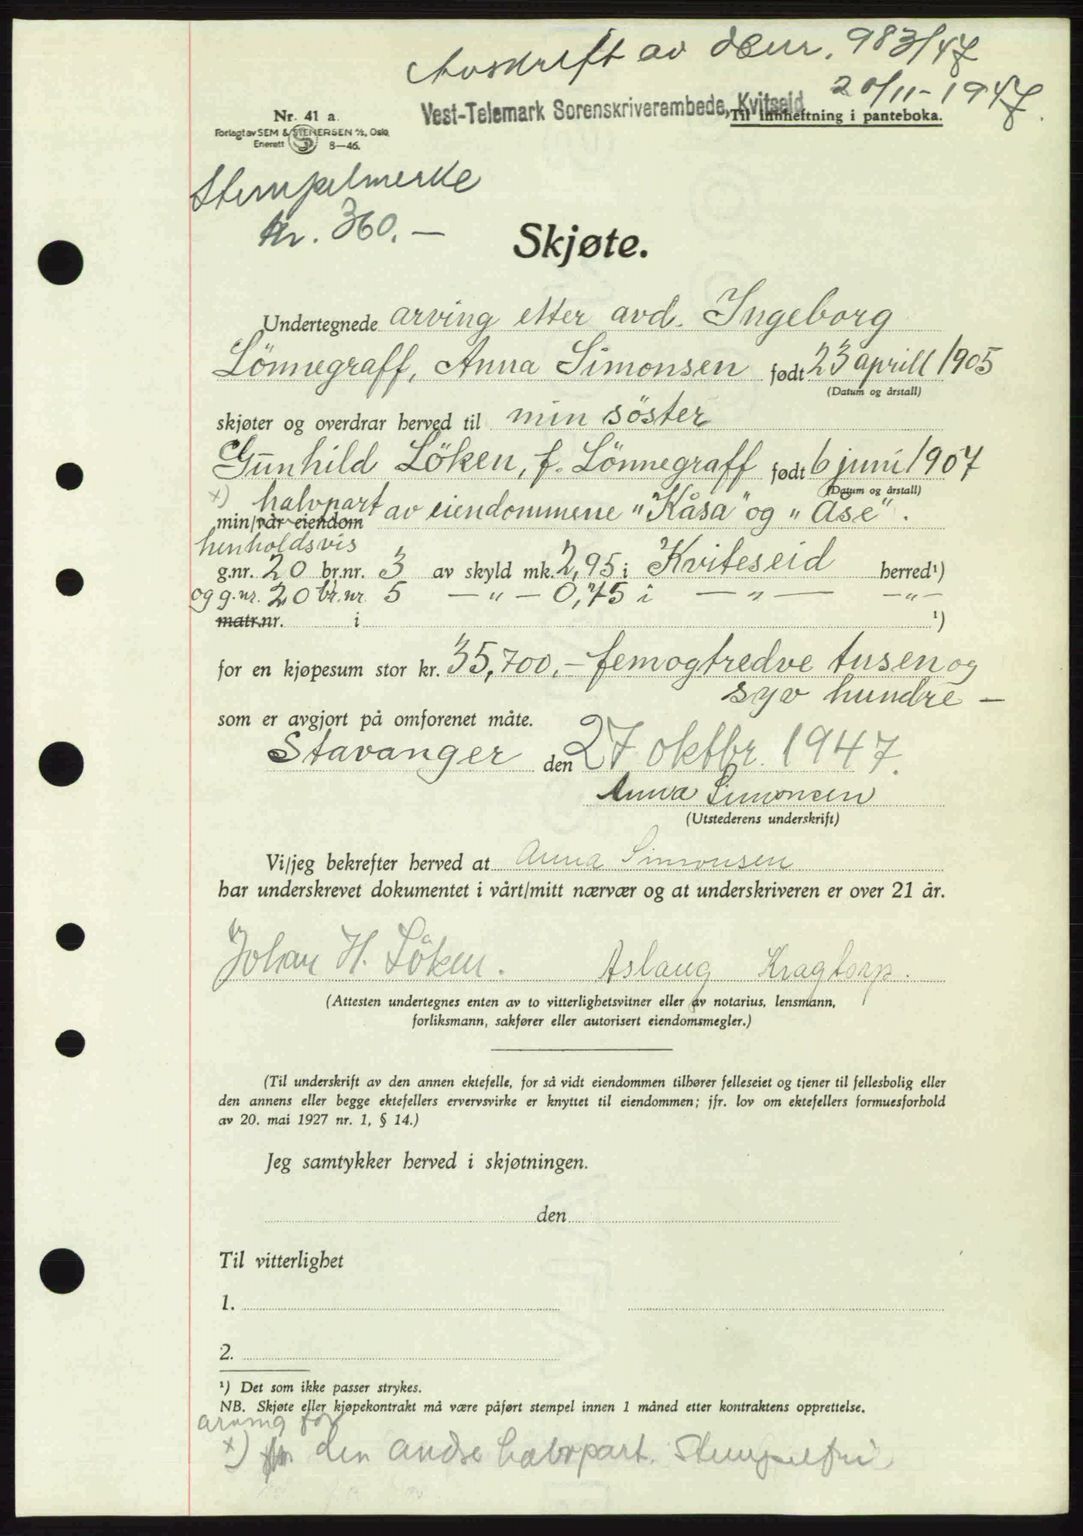 Avskrift av dbnr. 983/47
20/11-1947.
Vest-Telemark Sorenskriverembede, Kvitseid
Til innheftning i panteboka.
Nr. 41 a.
Forlagt av SEM & STENERSEN A/S, Oslo
Enerett 8-46.
Stempelmerke
kr. 360.-
Skjøte.
Undertegnede arving etter avd. Ingeborg
Lönnegraff, Anna Simonsen født 23 aprill 1905
(Datum og årstall)
skjøter og overdrar herved til min söster
Gunhild Löken, f. Lönnegraff født 6 juni 1907
(Datum og årstall)
x) halvpart av eiendommene "Kåsa" og "Åse".
min/vår eiendom
henholdsvis
g.nr. 20 br.nr. 3 av skyld mk. 2,95 i Kviteseid herred¹)
og g.nr. 20 br.nr. 5 — " — 0,75 i — " — — " —
matr.nr. i ¹)
for en kjøpesum stor kr. 35,700.- femogtredve tusen og
syv hundre -
som er avgjort på omforenet måte.
Stavanger den 27 oktbr. 1947.
Anna Simonsen
(Utstederens underskrift)
Vi/jeg bekrefter herved at Anna Simonsen
har underskrevet dokumentet i vårt/mitt nærvær og at underskriveren er over 21 år.
Johan H. Löken. Aslaug Kragtorp.
(Attesten undertegnes enten av to vitterlighetsvitner eller av notarius, lensmann,
forliksmann, sakfører eller autorisert eiendomsmegler.)
(Til underskrift av den annen ektefelle, for så vidt eiendommen tilhører felleseiet og tjener til fellesbolig eller
den annens eller begge ektefellers ervervsvirke er knyttet til eiendommen; jfr. lov om ektefellers formuesforhold
av 20. mai 1927 nr. 1, § 14.)
Jeg samtykker herved i skjøtningen.
den
Til vitterlighet
1.
2.
¹) Det som ikke passer strykes.
NB. Skjøte eller kjøpekontrakt må være påført stempel innen 1 måned etter kontraktens opprettelse.
arving for
x) den andre halvpart. Stempelfri